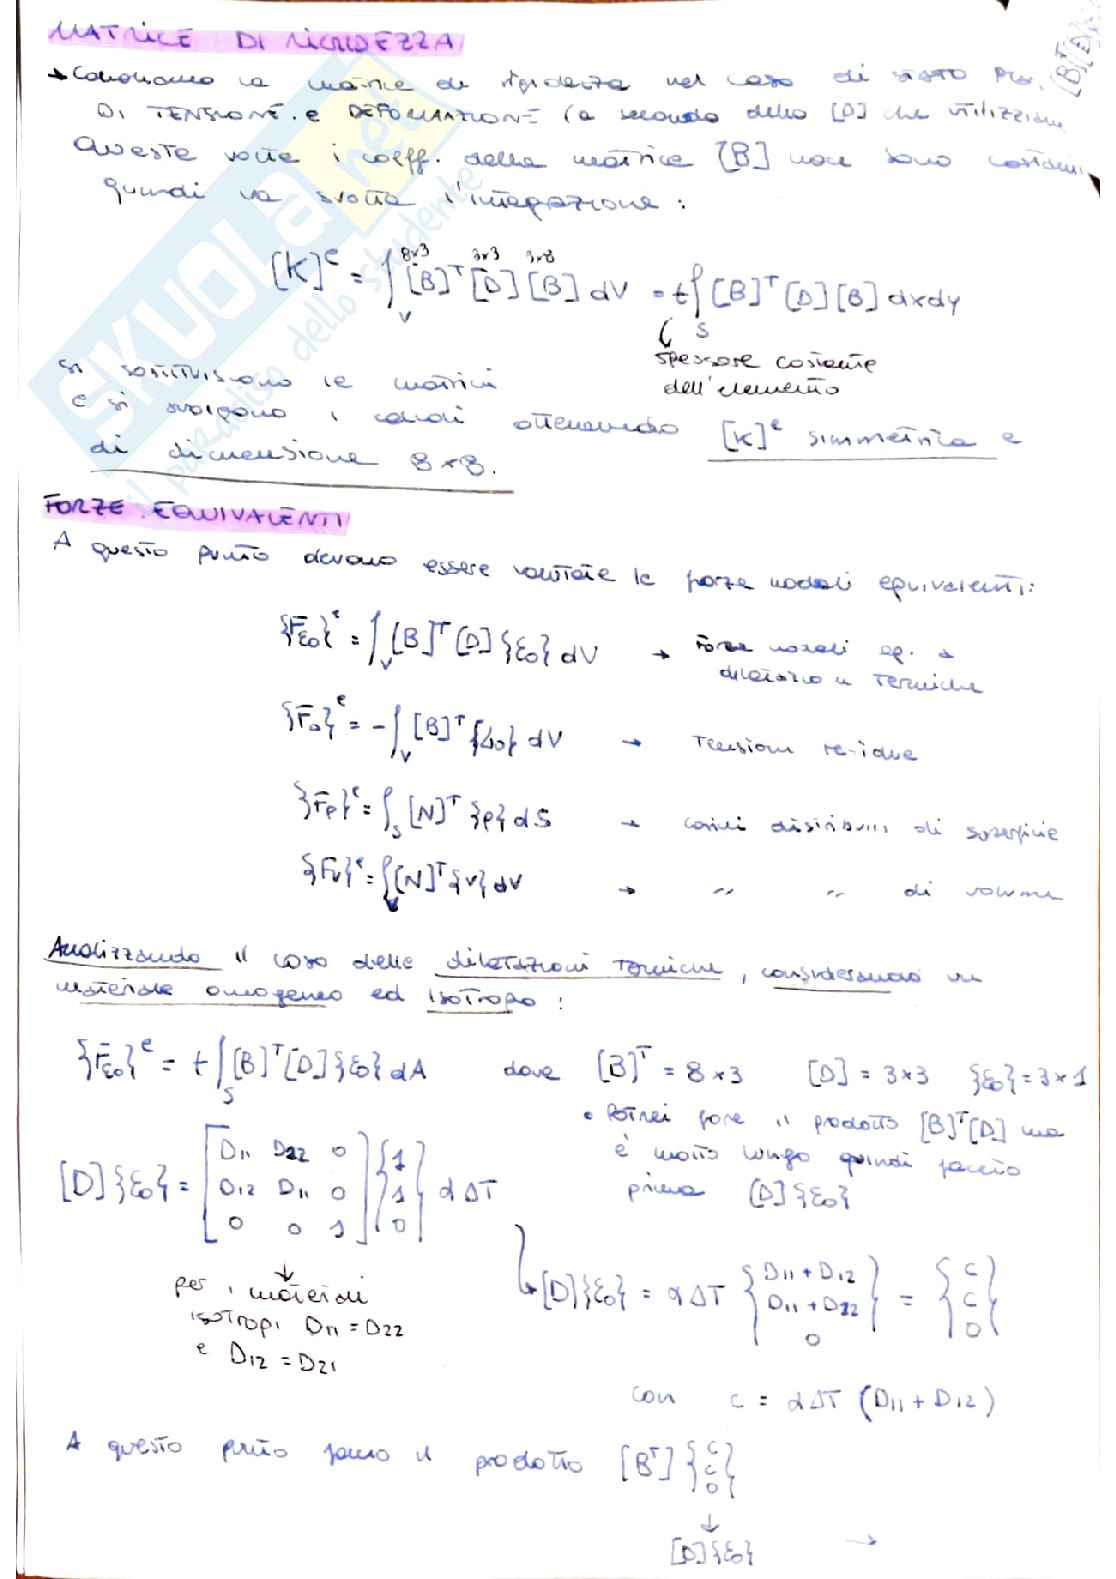 MATRICE DI RIGIDEZZA
→ Calcoliamo la matrice di rigidezza nel caso di stato
DI TENSIONE e DEFORMAZIONE (a seconda della [D] che utilizziamo
Questa volta i coeff. della matrice [B] non sono costanti,
quindi va svolta l'integrazione:
8x3 3x3 3x8
[K]^e = ∫_V [B]^T [D] [B] dV = t ∫_S [B]^T [D] [B] dxdy
spessore costante
dell'elemento
Si sostituiscono le matrici
e si svolgono i calcoli ottenendo [K]^e simmetrica e
di dimensione 8x8.
FORZE EQUIVALENTI
A questo punto devono essere valutate le forze nodali equivalenti:
{F̄ε₀}^e = ∫_V [B]^T [D] {ε₀} dV → Forze nodali eq. a
dilatazioni termiche
{F̄σ}^e = -∫_V [B]^T {σ₀} dV → Tensioni residue
{F̄p}^e = ∫_S [N]^T {p} dS → carichi distribuiti di superficie
{F̄v}^e = ∫_V [N]^T {v} dV → " " di volume
Analizzando il caso delle dilatazioni termiche, considerando un
materiale omogeneo ed isotropo:
{F̄ε₀}^e = t ∫_S [B]^T [D] {ε₀} dA dove [B]^T = 8x3 [D] = 3x3 {ε₀} = 3x1
• Potrei fare il prodotto [B]^T [D] ma
è molto lungo quindi faccio
prima [D]{ε₀}
[D]{ε₀} = [D11 D22 0
D12 D11 0
0 0 1] {1
1
0} α ΔT
per i materiali
isotropi D11 = D22
e D12 = D21
[D]{ε₀} = α ΔT {D11 + D12
D11 + D22
0} = {C
C
0}
con c = α ΔT (D11 + D12)
A questo punto faccio il prodotto [B^T] {C
C
0}
↓
[D]{ε₀} →
SKUOLA.net
il paradiso dello studente